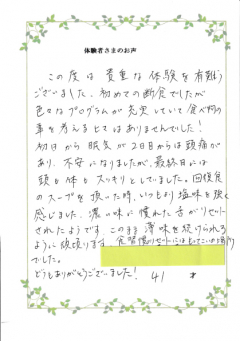 体験者さまのお声
この度は貴重な体験を有難う
ございました。初めての断食でしたが
色々なプログラムが充実していて食べ物の
事を考えることはありませんでした！
初日から眠気が2日目からは頭痛が
あり、不安になりましたが、最終日には
頭も体もスッキリとしていました。回復食
のスープを頂いた時、いつもより塩味を強く
感じました。濃い味に慣れた舌がリセット
されたようです。このまま薄味を続けられる
ように頑張ります。食習慣のリセットにはもってこいの場所
でした。
どうもありがとうございました！ 41 才